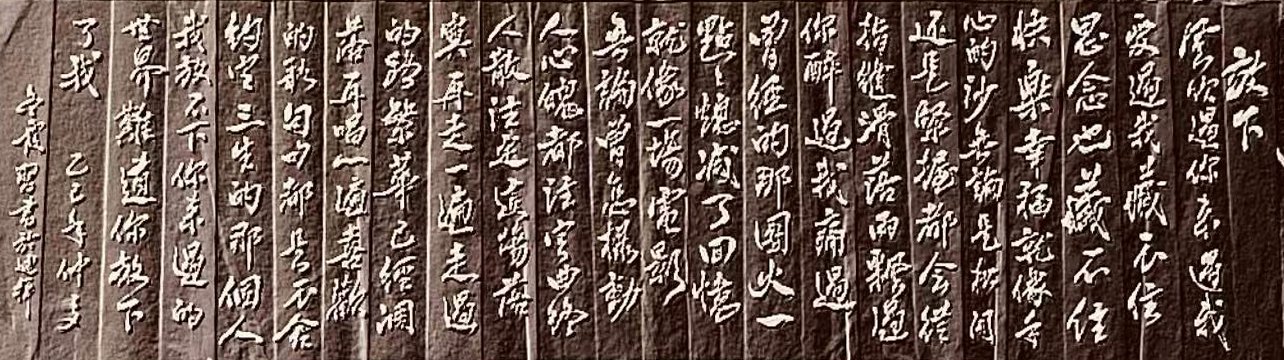 放下
風吹過你來過我
愛過我藏不住
思念也藏不住
快樂幸福就像手
心的沙無論是攤開
還是緊握都會從
指縫滑落雨飄過
你醉過我痛過
曾經的那團火一
點點熄滅了回憶
就像一場電影
無論曾怎樣動
人心魄都註定曲終
人散注定這場落
寞再走一遍走過
的路繁華已經凋
落再唱一遍喜歡
的歌句句都是不舍
約定三生的那個人
我放不下你來過的
世界難道你放下
了我 乙巳年仲夏